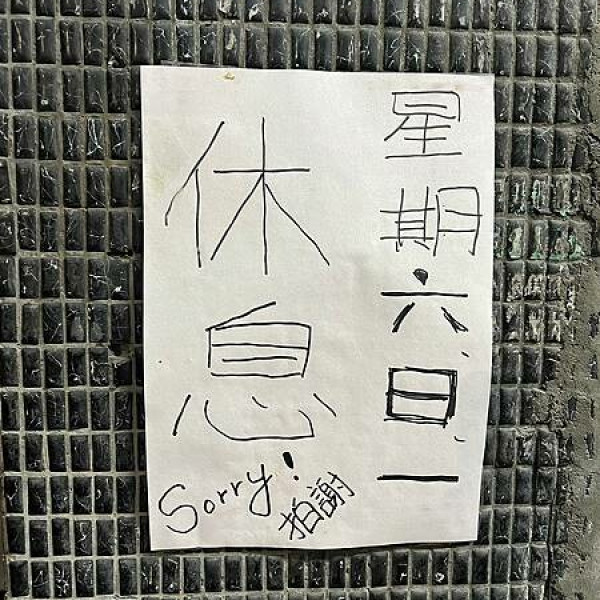 星期六、日、一
休息
Sorry!
拍謝